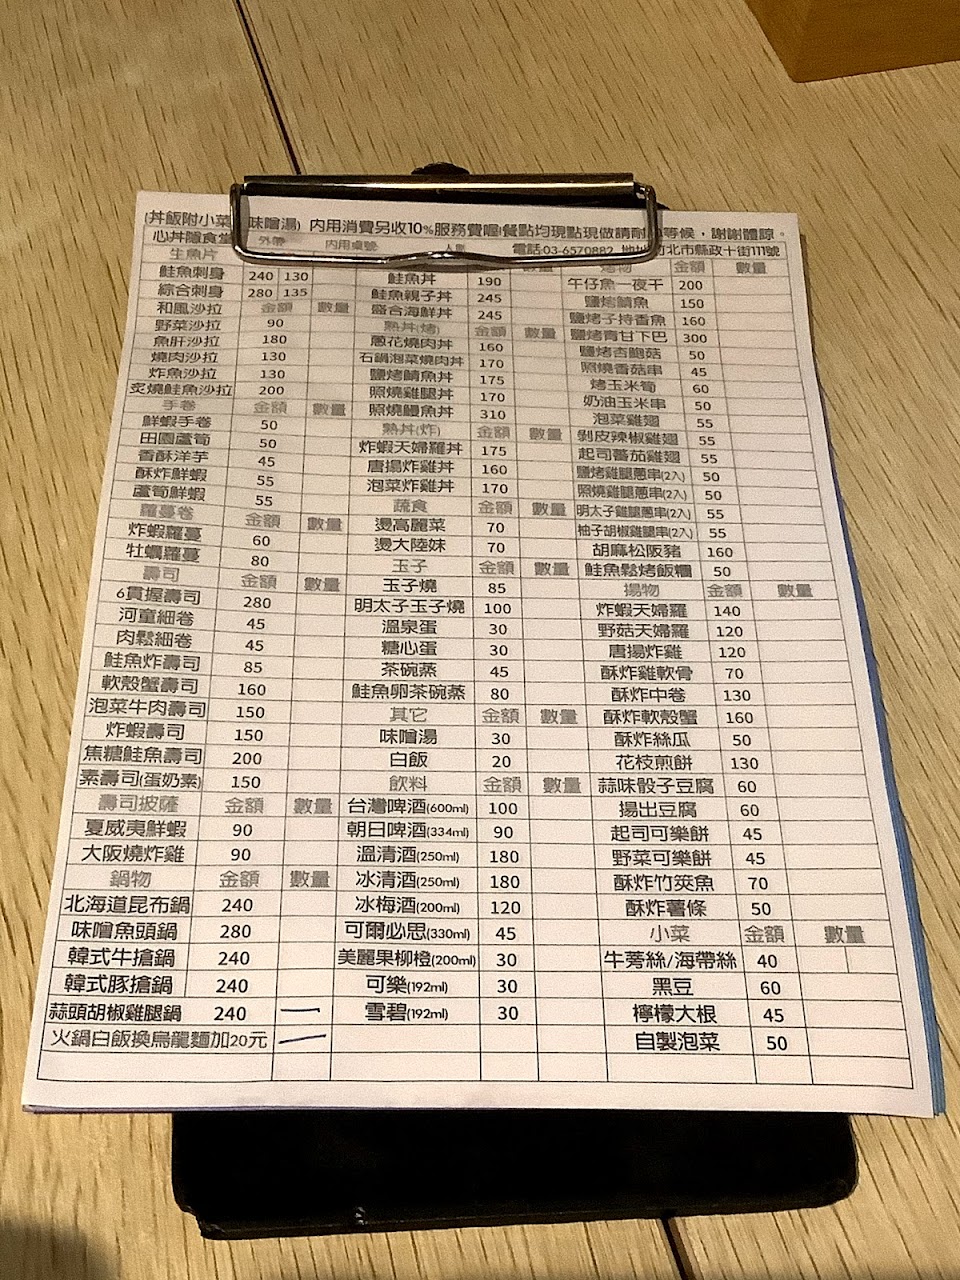 (丼飯附小菜 味噌湯) 內用消費另收10%服務費喔!餐點均現點現做請耐 等候，謝謝體諒。
心丼隨食堂 外帶 內用桌號 人數 電話03-6570882 地址 竹北市縣政十街111號
生魚片
鮭魚刺身 240 130
綜合刺身 280 135
和風沙拉 金額 數量
野菜沙拉 90
魚肝沙拉 180
燒肉沙拉 130
炸魚沙拉 130
炙燒鮭魚沙拉 200
手卷 金額 數量
鮮蝦手卷 50
田園蘆筍 50
香酥洋芋 45
酥炸鮮蝦 55
蘆筍鮮蝦 55
羅蔓卷 金額 數量
炸蝦羅蔓 60
牡蠣羅蔓 80
壽司 金額 數量
6貫握壽司 280
河童細卷 45
肉鬆細卷 45
鮭魚炸壽司 85
軟殼蟹壽司 160
泡菜牛肉壽司 150
炸蝦壽司 150
焦糖鮭魚壽司 200
素壽司(蛋奶素) 150
壽司披薩 金額 數量
夏威夷鮮蝦 90
大阪燒炸雞 90
鍋物 金額 數量
北海道昆布鍋 240
味噌魚頭鍋 280
韓式牛搶鍋 240
韓式豚搶鍋 240
蒜頭胡椒雞腿鍋 240 一
火鍋白飯換烏龍麵加20元 一
數量
鮭魚丼 190
鮭魚親子丼 245
盛合海鮮丼 245
熟丼(烤) 金額 數量
蔥花燒肉丼 160
石鍋泡菜燒肉丼 170
鹽烤鯖魚丼 175
照燒雞腿丼 170
照燒鰻魚丼 310
熟丼(炸) 金額 數量
炸蝦天婦羅丼 175
唐揚炸雞丼 160
泡菜炸雞丼 170
蔬食 金額 數量
燙高麗菜 70
燙大陸妹 70
玉子 金額 數量
玉子燒 85
明太子玉子燒 100
溫泉蛋 30
糖心蛋 30
茶碗蒸 45
鮭魚卵茶碗蒸 80
其它 金額 數量
味噌湯 30
白飯 20
飲料 金額 數量
台灣啤酒(600ml) 100
朝日啤酒(334ml) 90
溫清酒(250ml) 180
冰清酒(250ml) 180
冰梅酒(200ml) 120
可爾必思(330ml) 45
美麗果柳橙(200ml) 30
可樂(192ml) 30
雪碧(192ml) 30
烤物 金額 數量
午仔魚一夜干 200
鹽烤鯖魚 150
鹽烤子持香魚 160
鹽烤青甘下巴 300
鹽烤杏鮑菇 50
照燒香菇串 45
烤玉米筍 60
奶油玉米串 50
泡菜雞翅 55
剝皮辣椒雞翅 55
起司蕃茄雞翅 55
鹽烤雞腿蔥串(2入) 50
照燒雞腿蔥串(2入) 50
明太子雞腿蔥串(2入) 55
柚子胡椒雞腿串(2入) 55
胡麻松阪豬 160
鮭魚鬆烤飯糰 50
揚物 金額 數量
炸蝦天婦羅 140
野菇天婦羅 120
唐揚炸雞 120
酥炸雞軟骨 70
酥炸中卷 130
酥炸軟殼蟹 160
酥炸絲瓜 50
花枝煎餅 130
蒜味骰子豆腐 60
揚出豆腐 60
起司可樂餅 45
野菜可樂餅 45
酥炸竹筴魚 70
酥炸薯條 50
小菜 金額 數量
牛蒡絲/海帶絲 40
黑豆 60
檸檬大根 45
自製泡菜 50